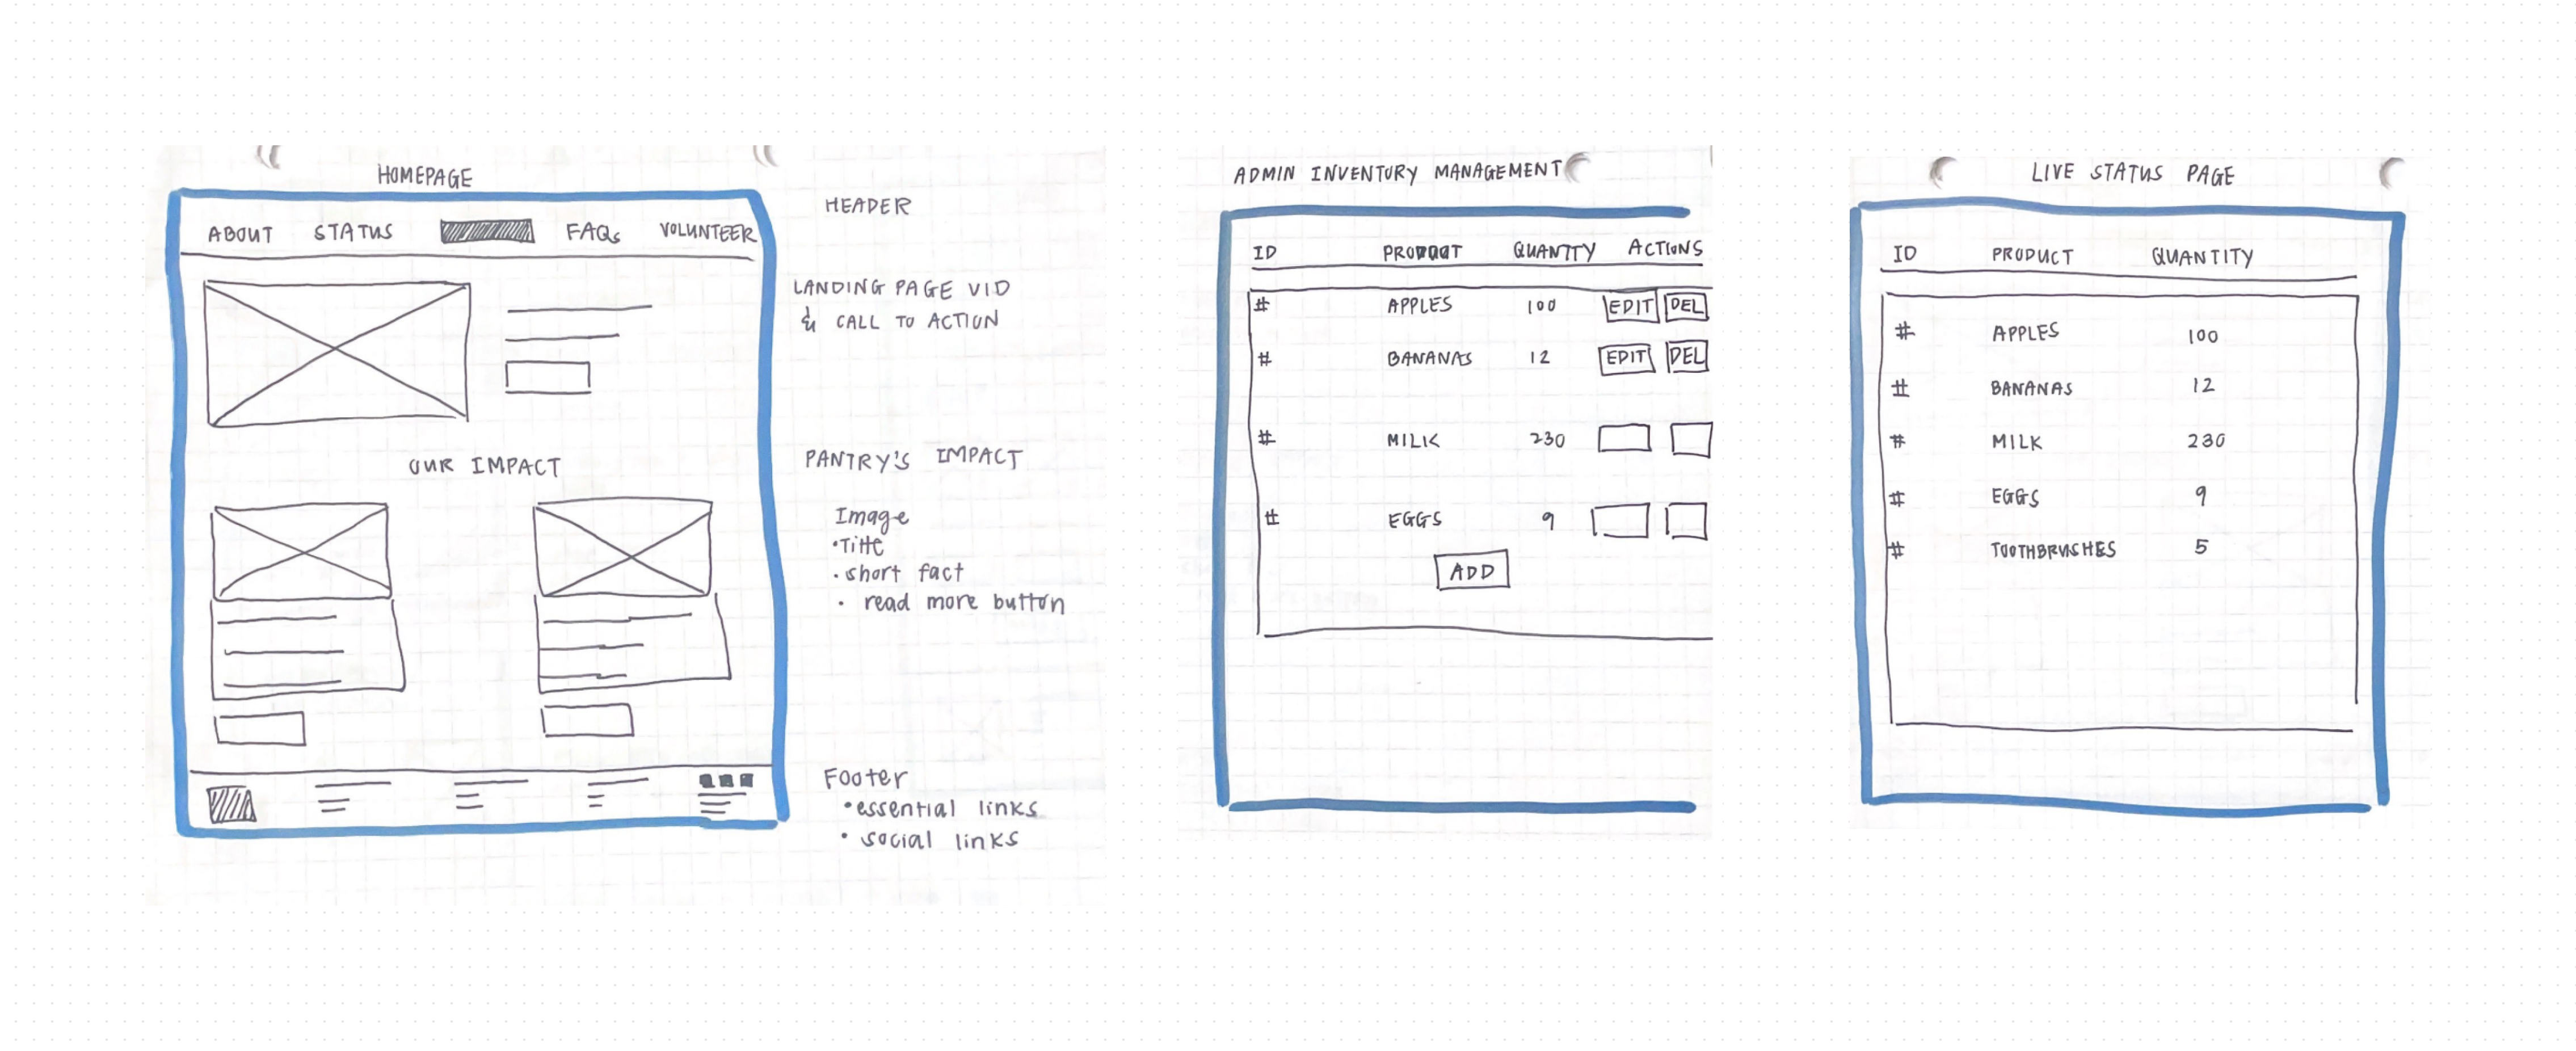 HOMEPAGE
ABOUT STATUS FAQs VOLUNTEER
HEADER
LANDING PAGE VID
& CALL TO ACTION
OUR IMPACT
PANTRY'S IMPACT
Image
• Title
• short fact
• read more button
Footer
• essential links
• social links
ADMIN INVENTORY MANAGEMENT
ID PRODUCT QUANTITY ACTIONS
# APPLES 100 EDIT DEL
# BANANAS 12 EDIT DEL
# MILK 230
# EGGS 9
ADD
LIVE STATUS PAGE
ID PRODUCT QUANTITY
# APPLES 100
# BANANAS 12
# MILK 230
# EGGS 9
# TOOTHBRUSHES 5